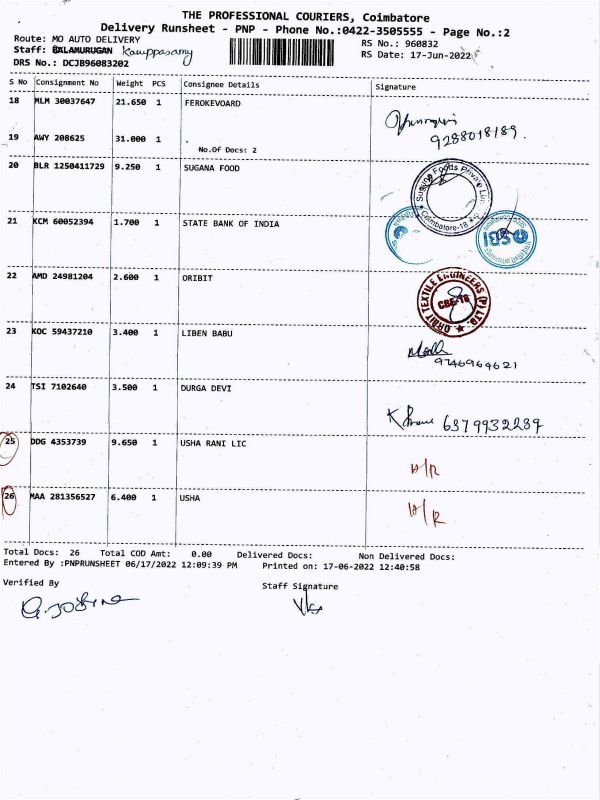 THE PROFESSIONAL COURIERS, Coimbatore
Delivery Runsheet - PNP - Phone No.:0422-3505555 - Page No.:2
Route: MO AUTO DELIVERY RS No.: 960832
Staff: BALAMURUGAN Karuppasamy RS Date: 17-Jun-2022
DRS No.: DCJB96083202
S No Consignment No Weight PCS Consignee Details Signature
18 MLM 30037647 21.650 1 FEROKEVOARD
9288018189.
19 AWY 208625 31.000 1 .
No.Of Docs: 2
20 BLR 1250411729 9.250 1 SUGANA FOOD
Suguna Foods Private Coimbatore-18
21 KCM 60052394 1.700 1 STATE BANK OF INDIA
SBI
22 AMD 24981204 2.600 1 ORIBIT
ORBIT TEXTILE ENGINEERS (P) LTD CBE-18
23 KOC 59437210 3.400 1 LIBEN BABU
9746964621
24 TSI 7102640 3.500 1 DURGA DEVI
6379932239
25 DDG 4353739 9.650 1 USHA RANI LIC
26 MAA 281356527 6.400 1 USHA
Total Docs: 26 Total COD Amt: 0.00 Delivered Docs: Non Delivered Docs:
Entered By :PNPRUNSHEET 06/17/2022 12:09:39 PM Printed on: 17-06-2022 12:40:58
Verified By Staff Signature